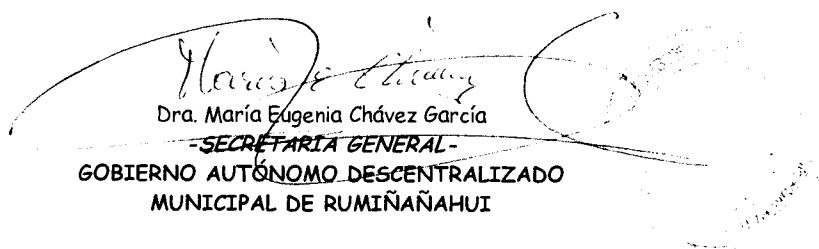 Dra. María Eugenia Chávez García
-SECRETARIA GENERAL-
GOBIERNO AUTÓNOMO DESCENTRALIZADO
MUNICIPAL DE RUMIÑAÑAHUI